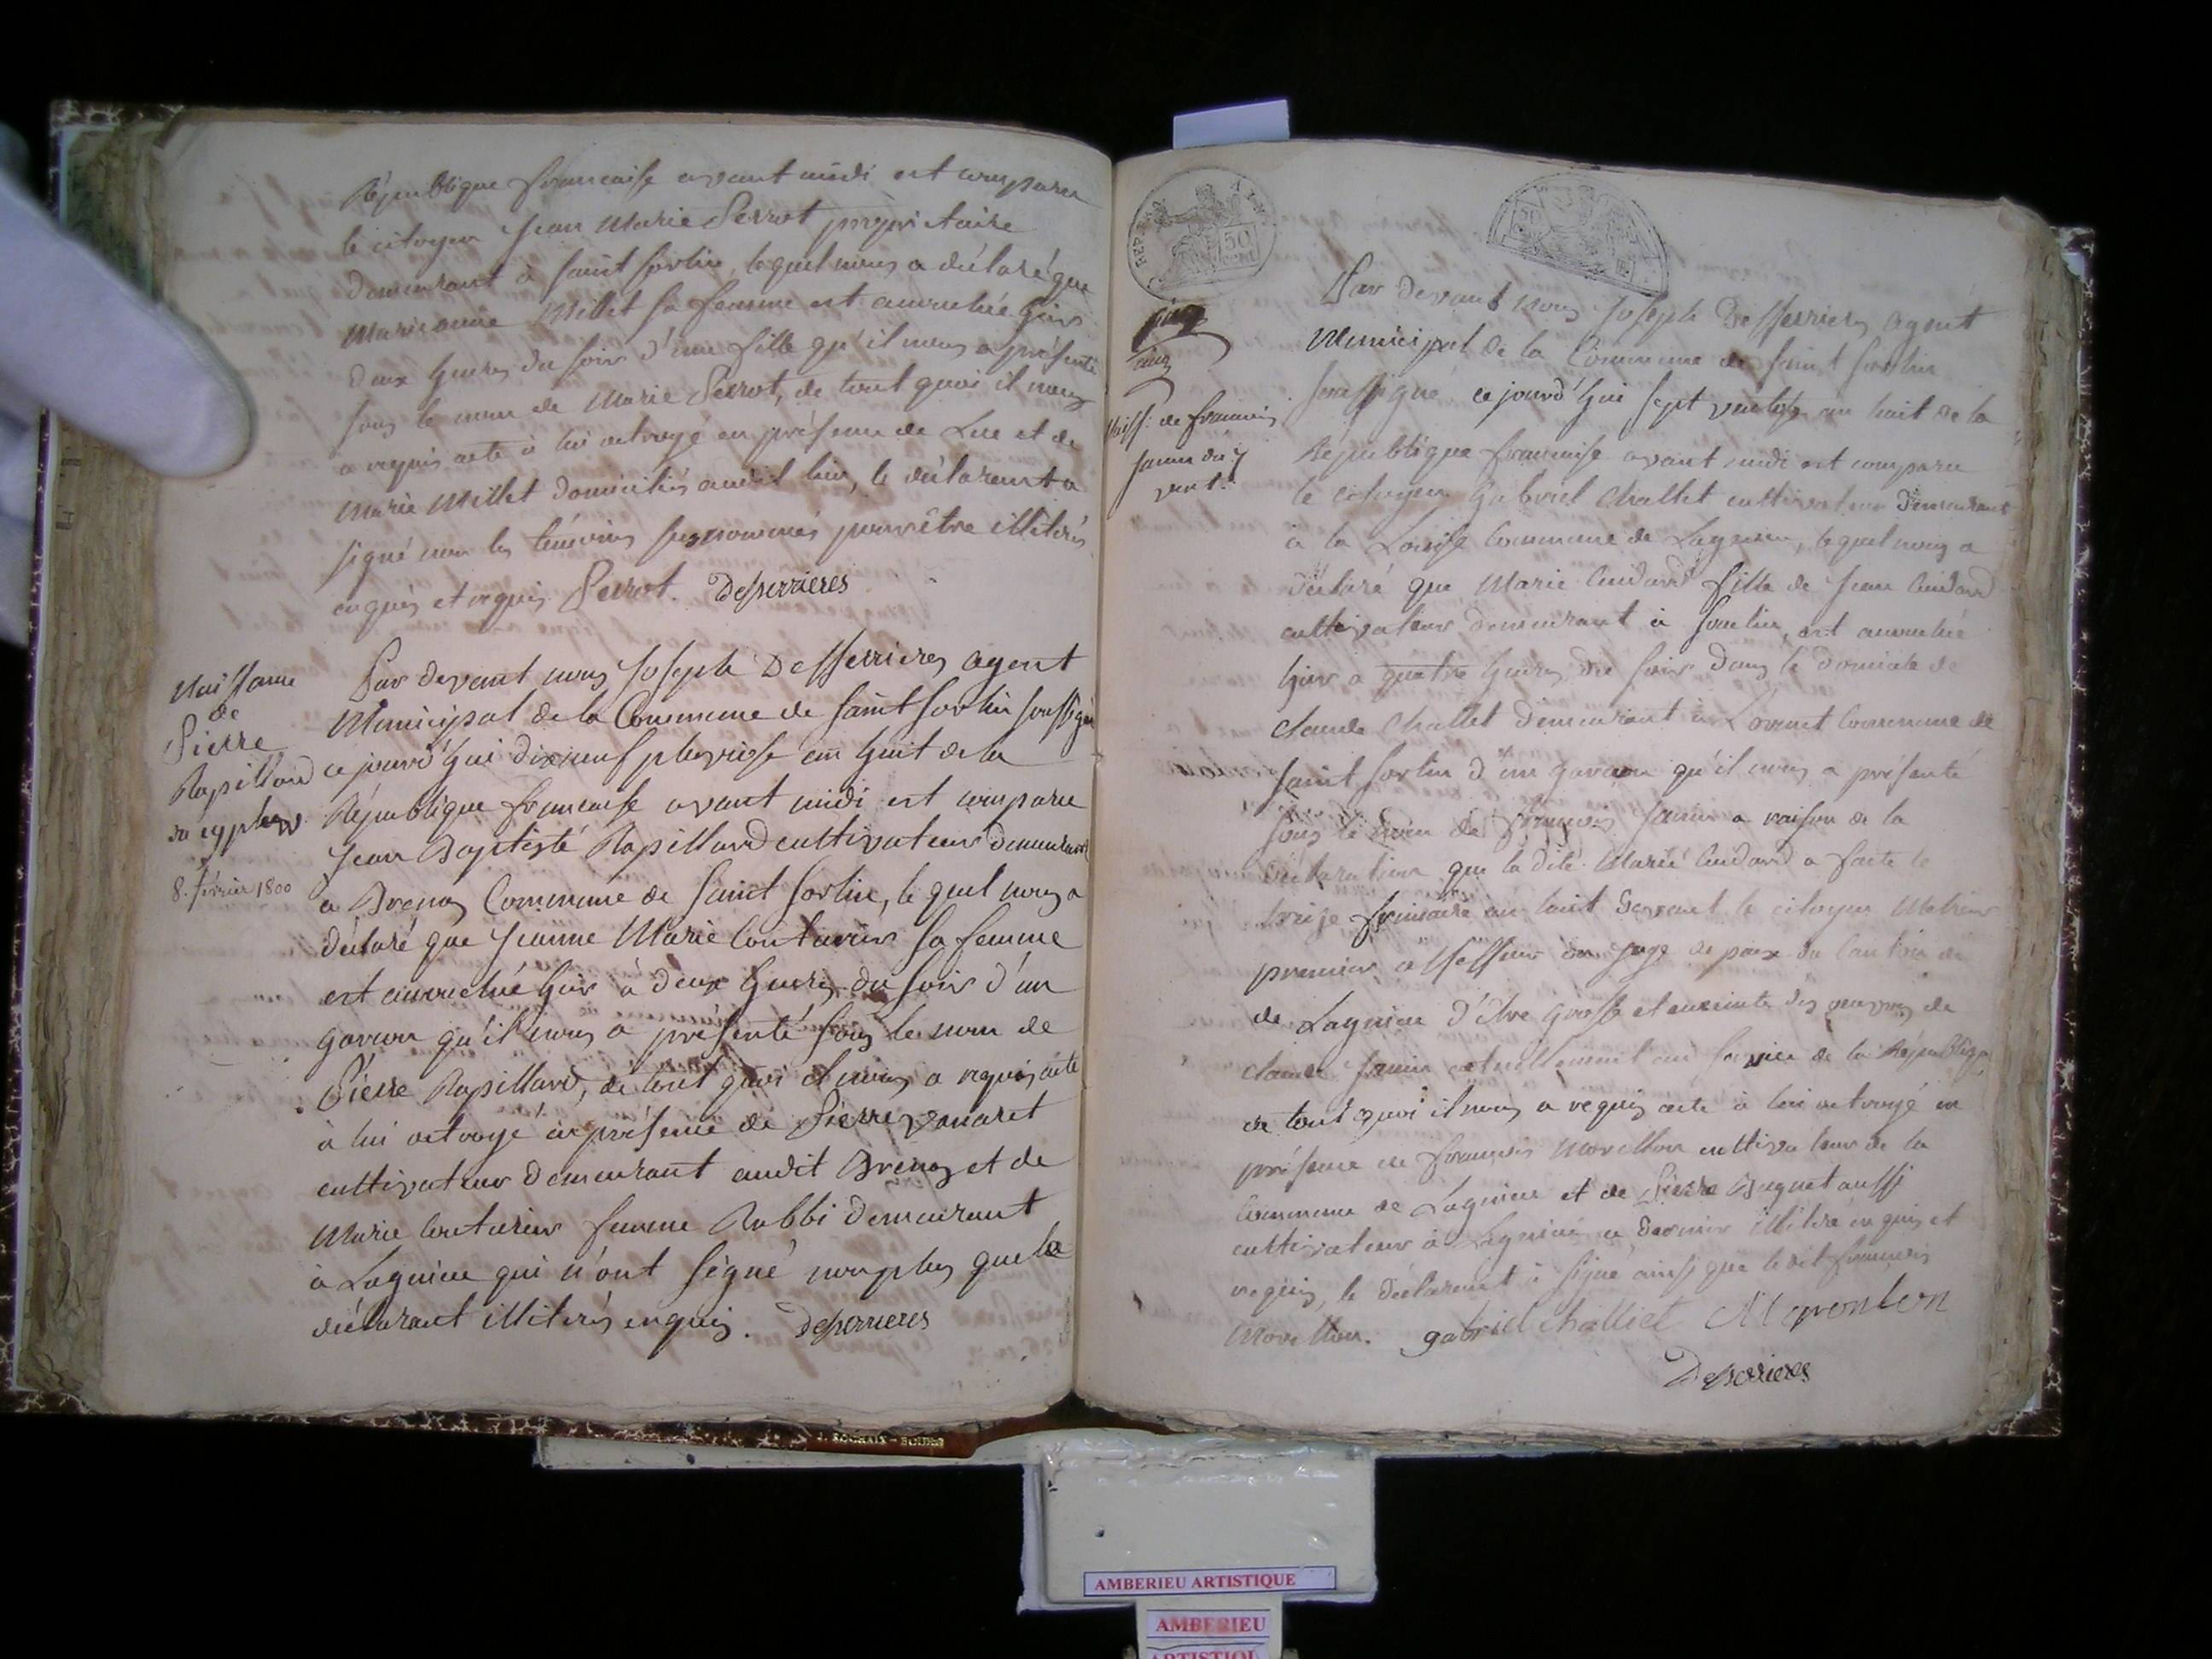 République francaise avant midi est comparu
le citoyen Jean Marie Perrot propriétaire
demeurant à Saint Sorlin, lequel nous a déclaré que
Marianne Millet sa femme est accouchée hier
deux heures du soir d'une fille qu'il nous a présenté
sous le nom de Marie Perrot, de tout quoi il nous
a requis acte à lui octroyé en présence de Luc et de
Marie Millet domiciliés audit lieu, le déclarant a
signé non les témoins susnommés pour être illitérés
enquis et requis Perrot. Desferrieres
Naissance
de
Pierre
Rapillard
du 19 pluv
8. février 1800
Par devant nous Joseph Desferrieres agent
Municipal de la Commune de Saint Sorlin soussigné
ce jourd'hui dixneuf pluviose an huit de la
République francaise avant midi est comparu
Jean Baptiste Rapillard cultivateur demeurant
a Brenaz Commune de Saint Sorlin, le quel nous a
déclaré que Jeanne Marie Couturier sa femme
est accouchée hier à deux heures du soir d'un
garcon qu'il nous a présenté sous le nom de
Pierre Rapillard, de tout quoi il nous a requis acte
à lui octroyé en présence de Pierre Vanaret
cultivateur demeurant audit Brenaz et de
Marie Couturier femme Rabbi demeurant
à Lagnieu qui n'ont signé non plus que le
déclarant illitérés enquis. Desferrieres
50
cinq
Naiss. de Francois
Janin du 7
vent.
Par devant nous Joseph Desferrieres agent
Municipal de la Commune de Saint Sorlin
soussigné ce jourd'hui sept ventose an huit de la
République francaise avant midi est comparu
le citoyen Gabriel Challet cultivateur demeurant
à la Commune de Lagnieu, lequel nous a
déclaré que Marie Cuidard fille de Jean Cuidard
cultivateur demeurant à Soulin, est accouchée
hier a quatre heures du soir dans le domicile de
claude Challet demeurant à Commune de
Saint Sorlin d'un garcon qu'il nous a présenté
sous le nom de francois Janin a raison de la
déclaration que la dite Marie Cuidard a faite le
treize frimaire an huit devant le citoyen
premier assesseur du juge de paix du Canton de
de Lagnieu d'être grosse et enceinte des oeuvres de
claude Janin actuellement au service de la République
de tout quoi il nous a requis acte à lui octroyé en
présence de francois Morellon cultivateur de la
Commune de Lagnieu et de Pierre Buguet aussi
cultivateur à Lagnieu ce dernier illitéré enquis et
requis, le déclarant a signé ainsi que le dit francois
Morellon. gabriel challiet
Desferrieres
J. ROCHAIX - BOURG
AMBERIEU ARTISTIQUE
AMBERIEU